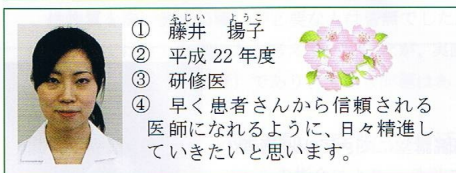 ふじい ようこ
① 藤井 揚子
② 平成22年度
③ 研修医
④ 早く患者さんから信頼される
医師になれるように、日々精進し
ていきたいと思います。